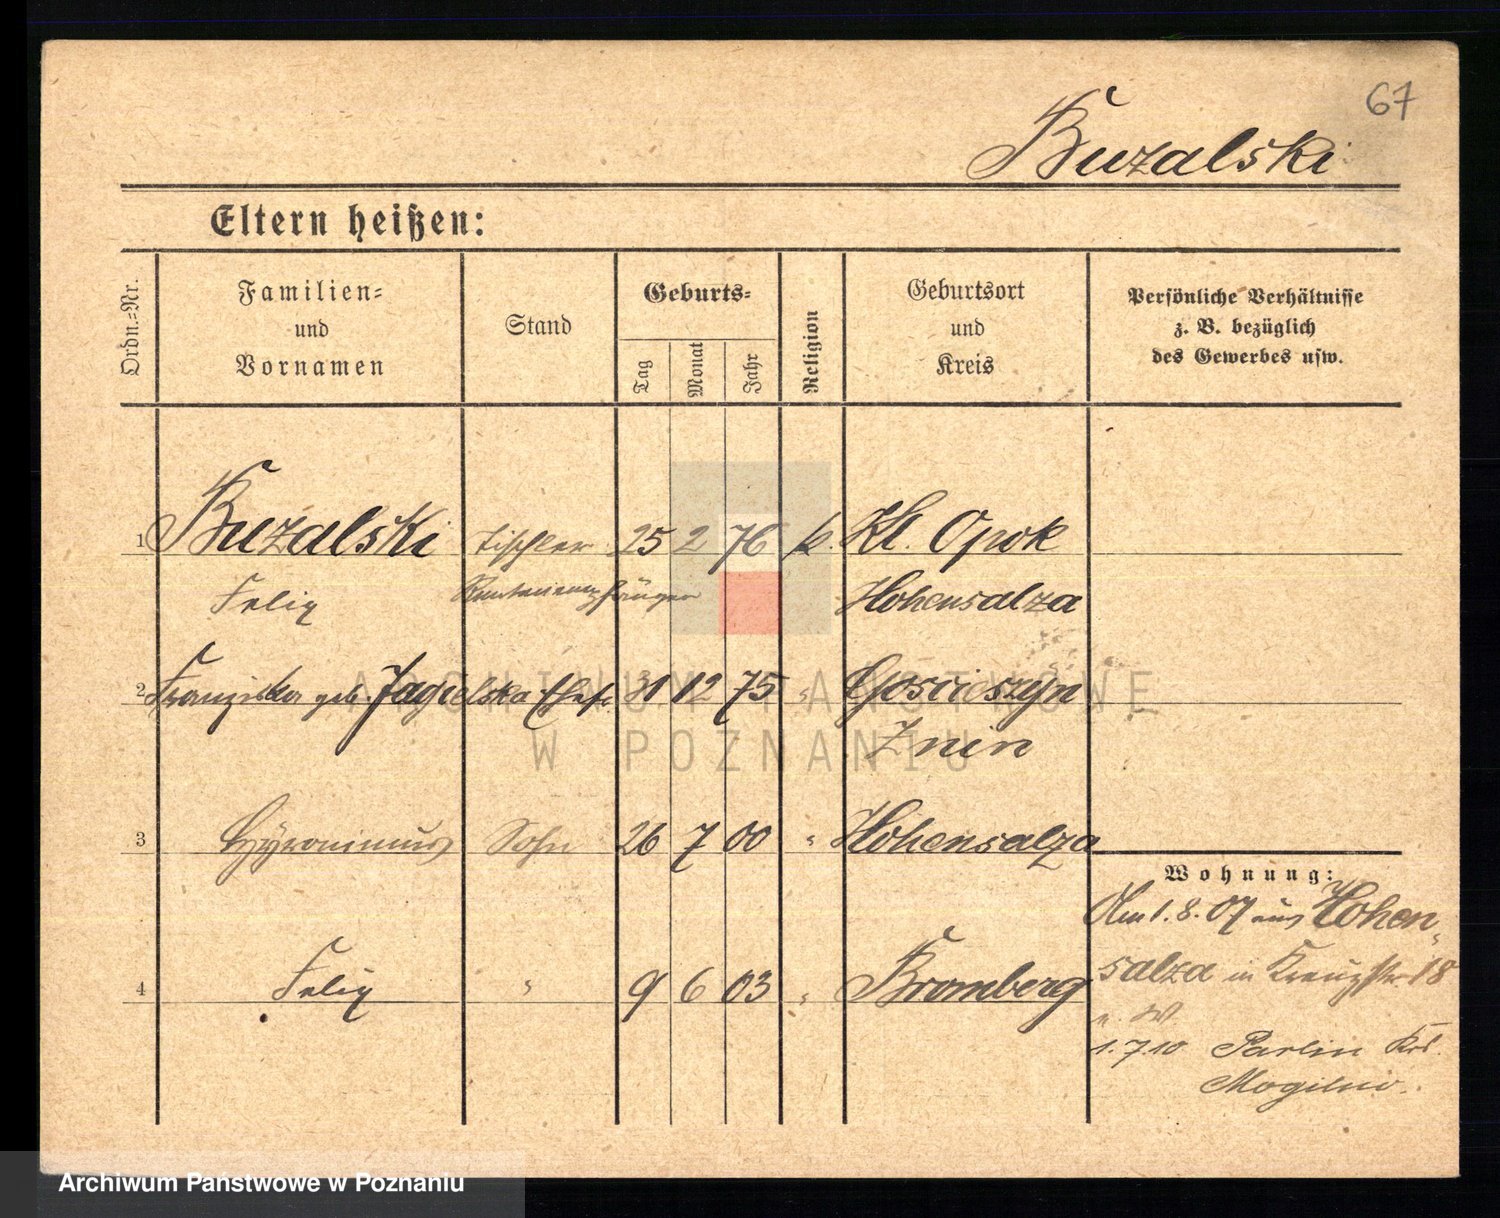 67
Buzalski
Eltern heißen:
Ordn.-Nr.
Familien-
und
Vornamen
Stand
Geburts-
Tag
Monat
Jahr
Religion
Geburtsort
und
Kreis
Persönliche Verhältnisse
z. B. bezüglich
des Gewerbes usw.
1 Buzalski Tischler 25 2 76 k. Kl. Opok
Felix Rentenempfänger Hohensalza
2 Franziska geb. Jagielska Ehefr. 31 12 75 " Gościeszyn
Znin
3 Hyronimus Sohn 26 7 00 " Hohensalza
Wohnung:
Am 1.8.07 aus Hohen-
4 Felix " 9 6 03 " Bromberg
salza in Kreuzstr. 18
1.7.10 Parlin Krs.
Mogilno.
ARCHIWUM PAŃSTWOWE
W POZNANIU
Archiwum Państwowe w Poznaniu